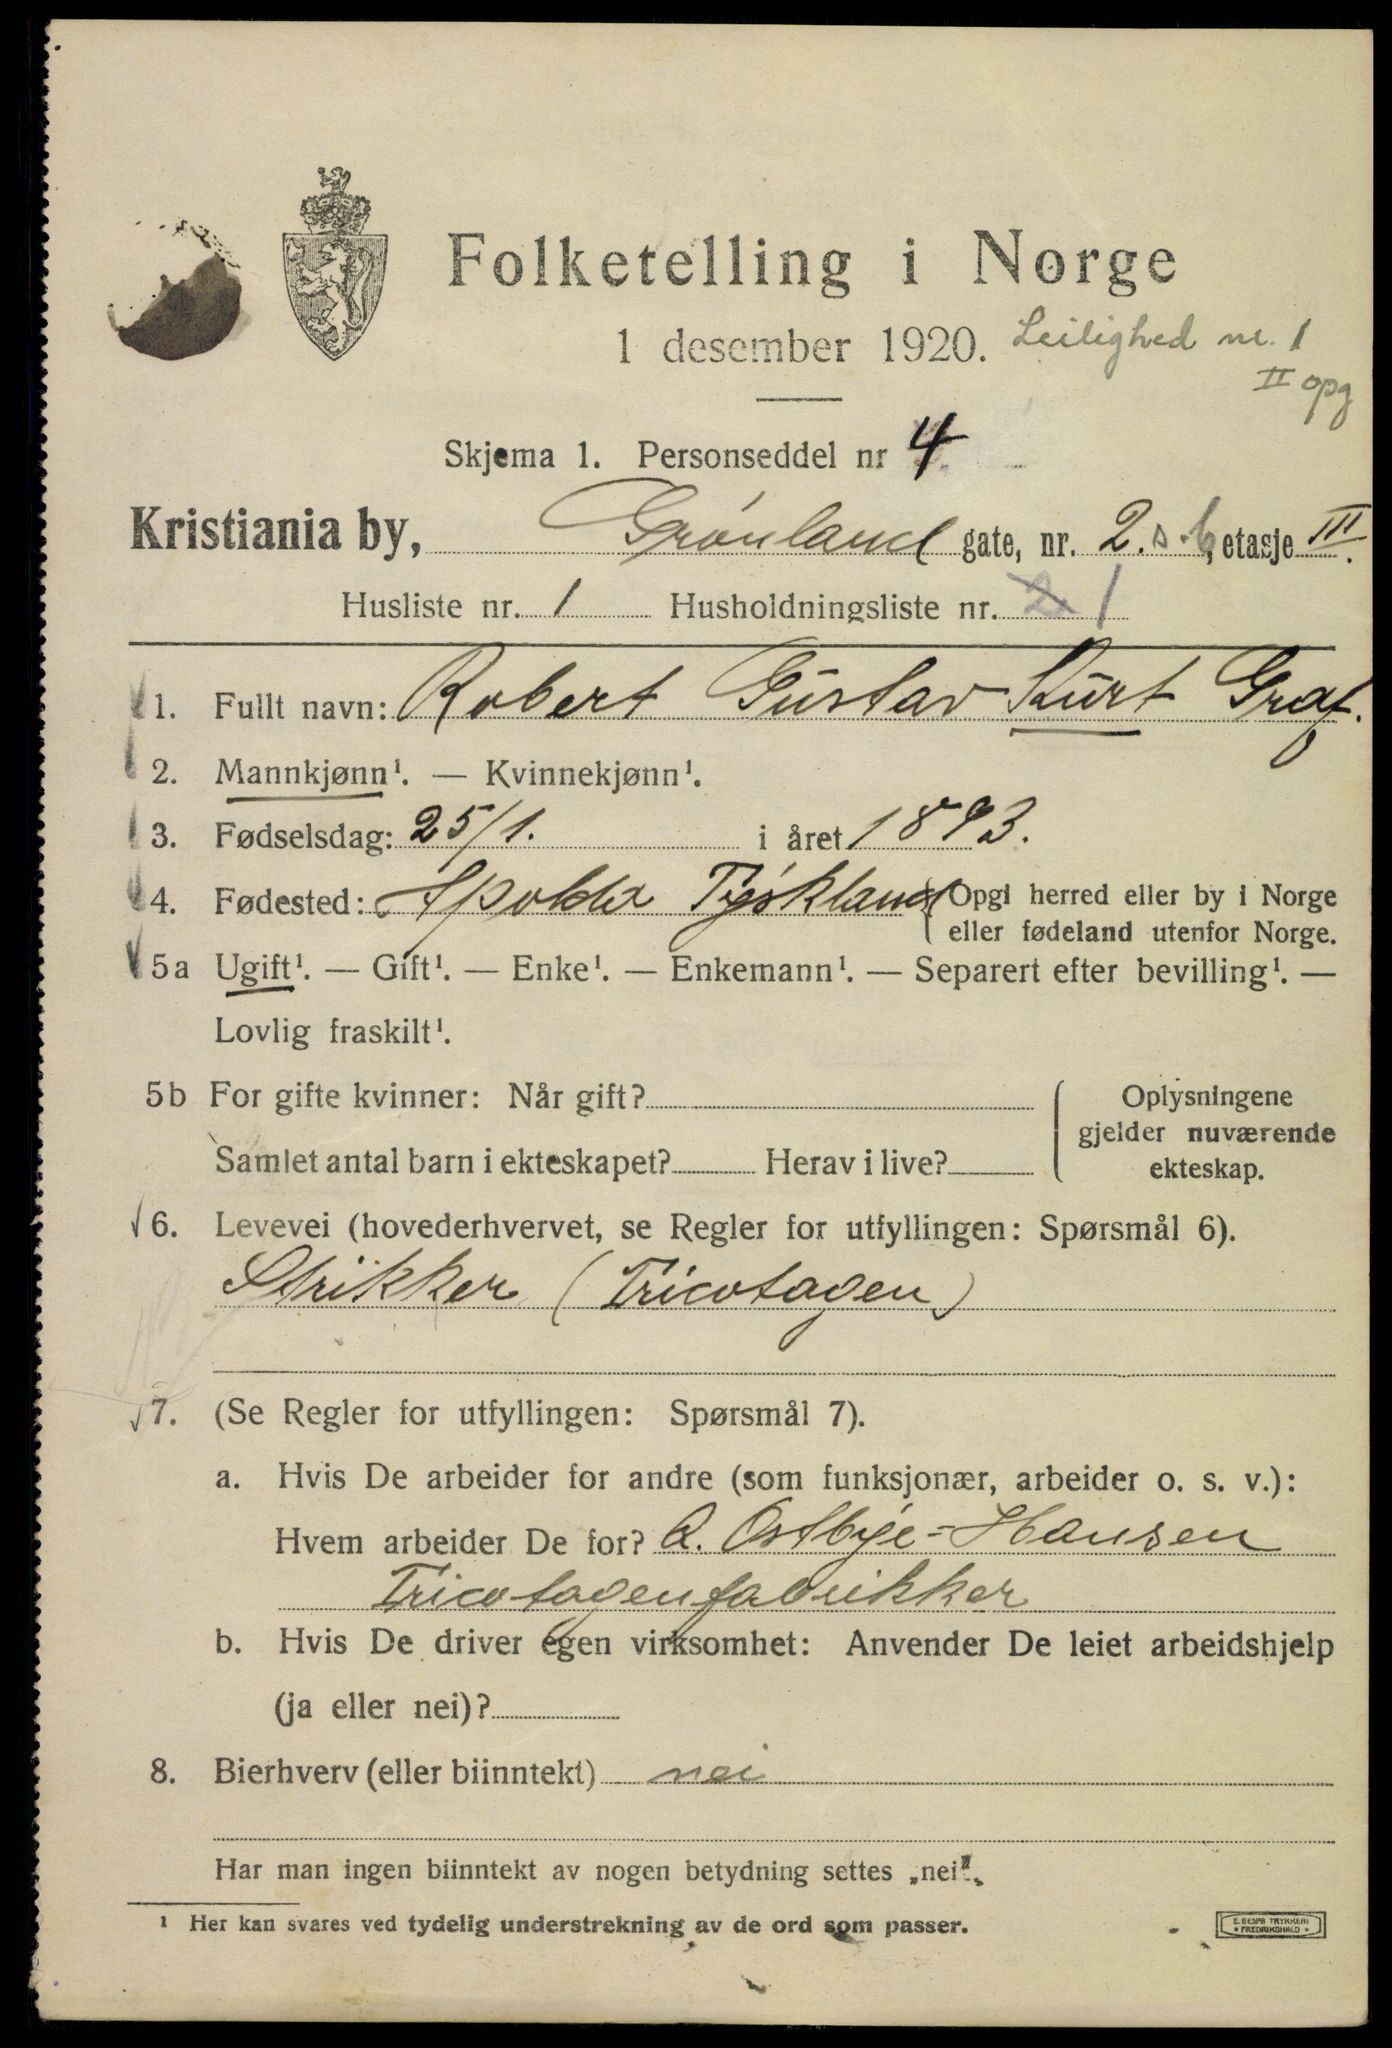 Folketelling i Norge
1 desember 1920.
Leilighed nr. 1
II opg
Skjema 1. Personseddel nr 4
Kristiania by, Grønland gate, nr. 2. s. b, etasje III.
Husliste nr. 1 Husholdningsliste nr. 2 1
1. Fullt navn: Robert Gustav Kurt Graf.
2. Mannkjønn¹. — Kvinnekjønn¹.
3. Fødselsdag: 25/1. i året 1893.
4. Fødested: Apolda Tyskland { Opgi herred eller by i Norge
eller fødeland utenfor Norge.
5a Ugift¹. — Gift¹. — Enke¹. — Enkemann¹. — Separert efter bevilling¹. —
Lovlig fraskilt¹.
5b For gifte kvinner: Når gift?
Samlet antal barn i ekteskapet? Herav i live?
Oplysningene
gjelder nuværende
ekteskap.
6. Levevei (hovederhvervet, se Regler for utfyllingen: Spørsmål 6).
Strikker (Tricotagen)
7. (Se Regler for utfyllingen: Spørsmål 7).
a. Hvis De arbeider for andre (som funksjonær, arbeider o. s. v.):
Hvem arbeider De for? A. Ostbye-Hansen
Tricotagenfabrikker
b. Hvis De driver egen virksomhet: Anvender De leiet arbeidshjelp
(ja eller nei)?
8. Bierhverv (eller biinntekt) nei
Har man ingen biinntekt av nogen betydning settes „nei".
¹ Her kan svares ved tydelig understrekning av de ord som passer.
E. SEM'S TRYKKERI
FREDRIKSHALD